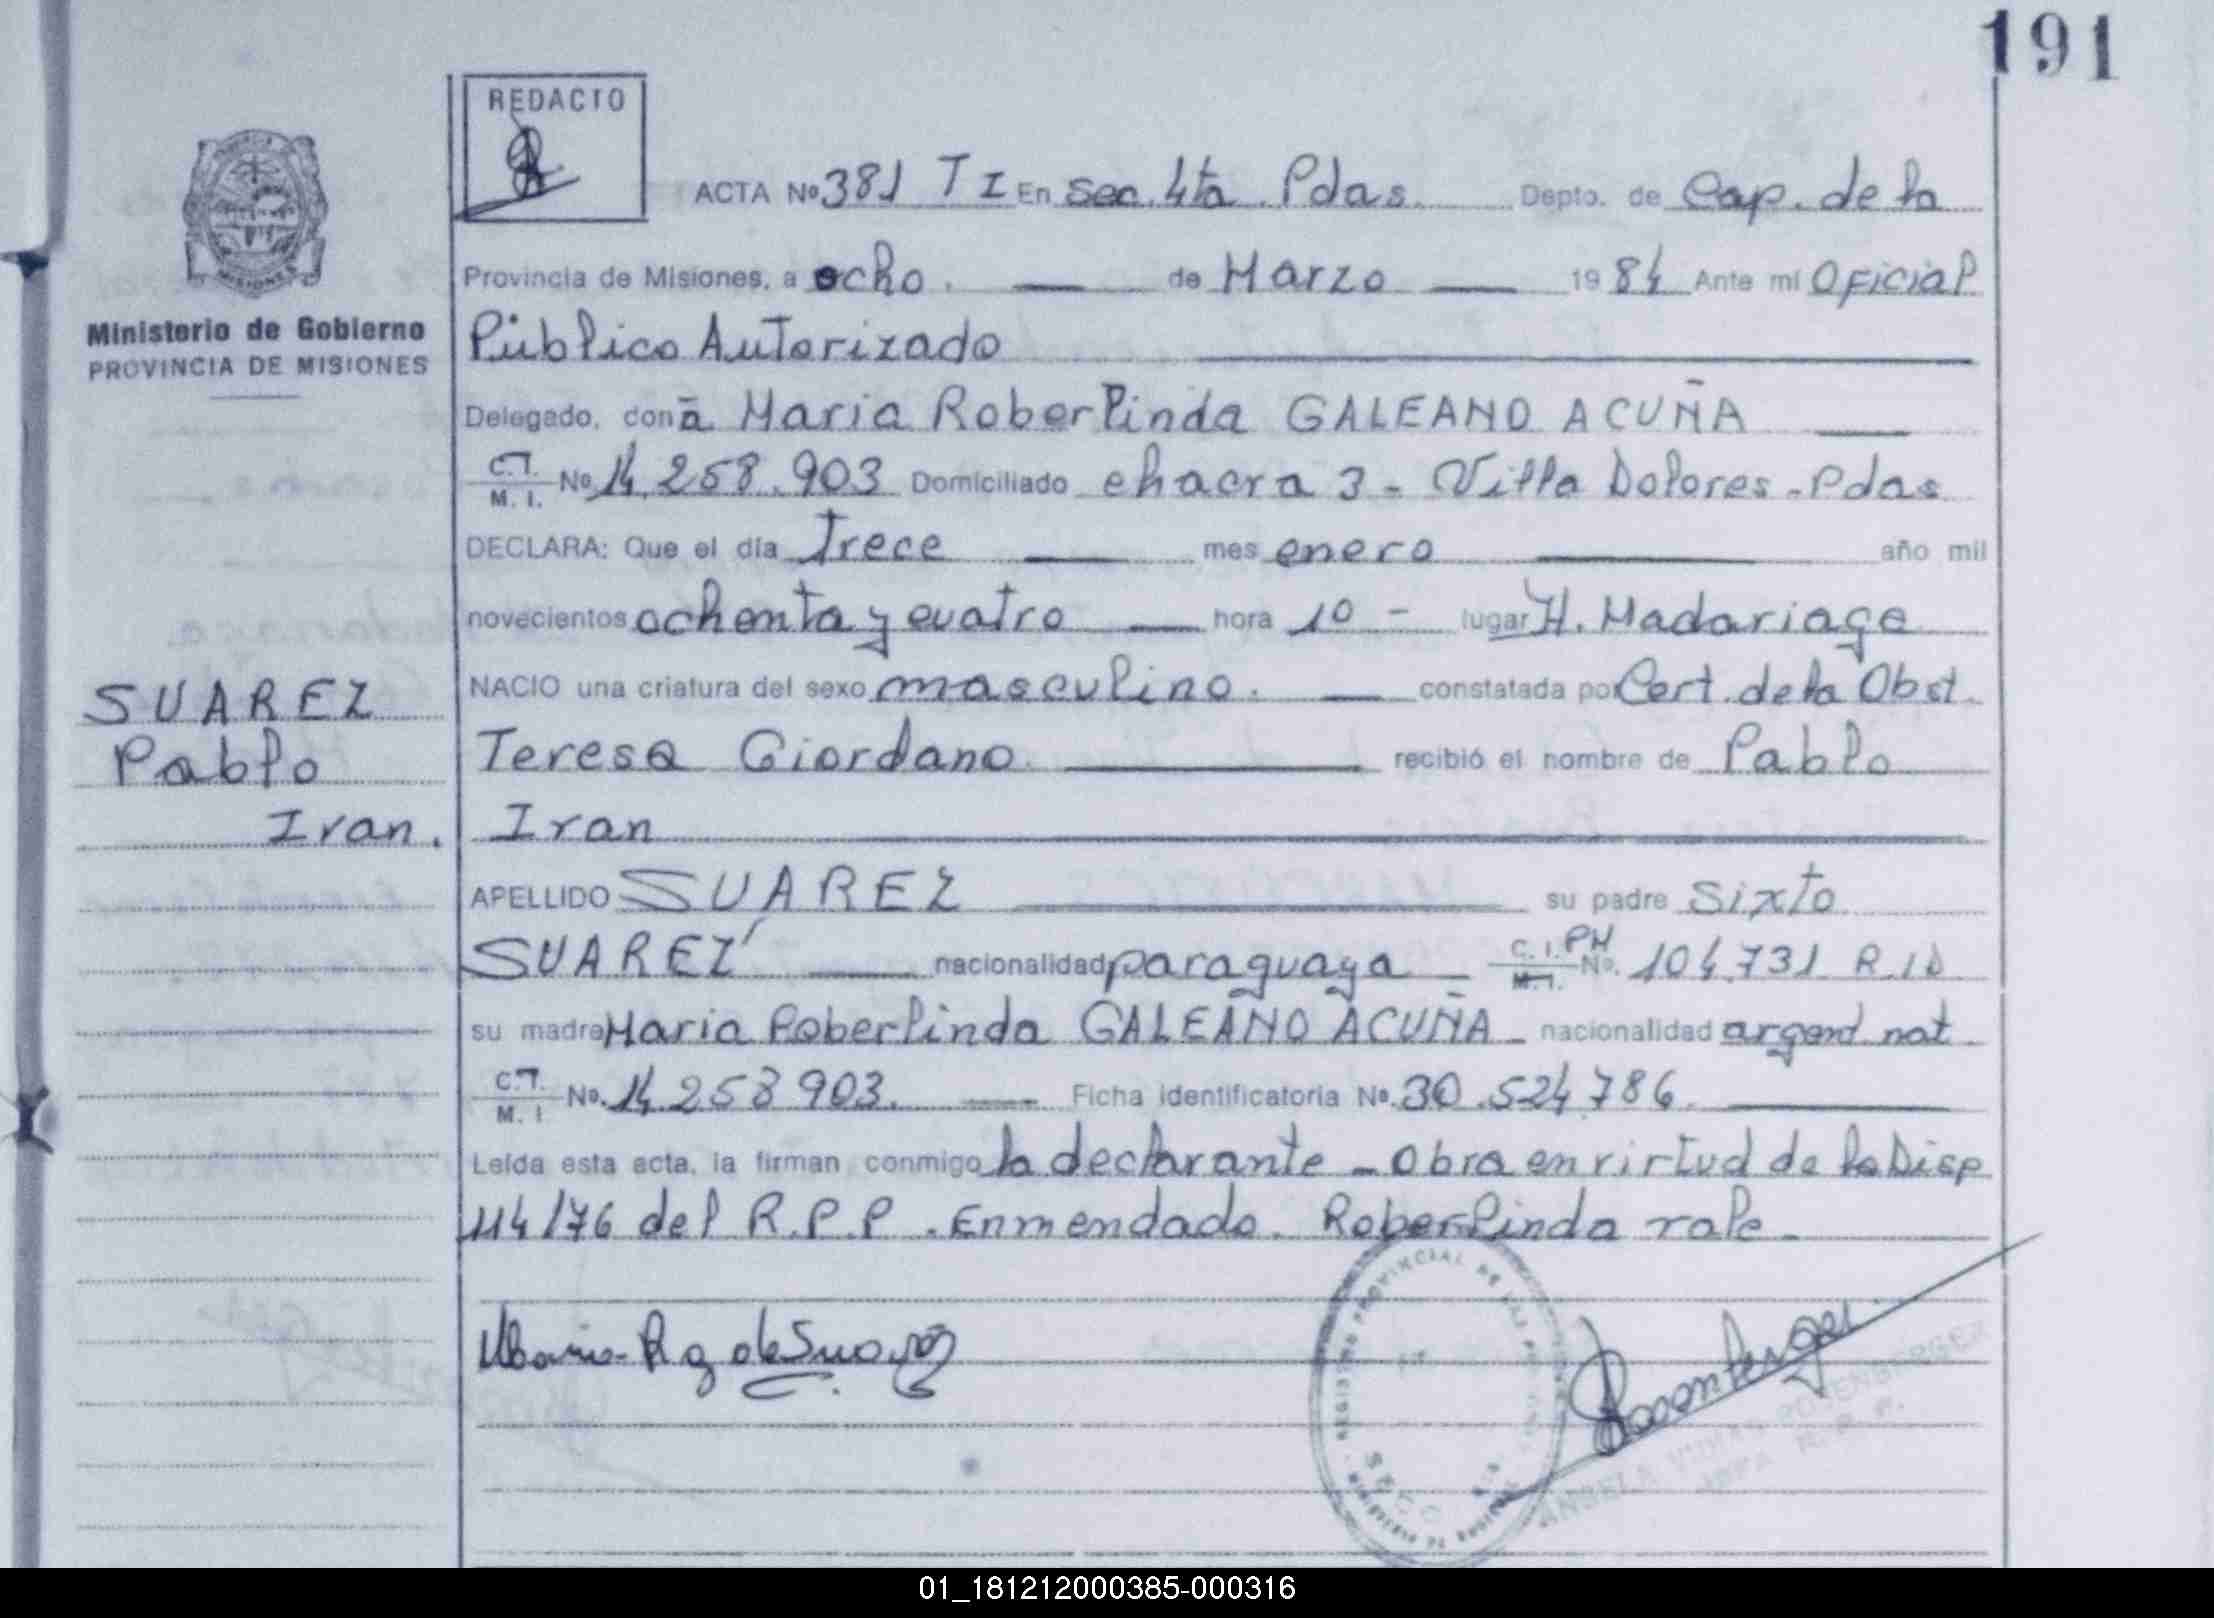 191
REDACTO
ACTA Nº 381 T I En Sec. 4ta. Pdas. Depto. de Cap. de la
Provincia de Misiones, a ocho. — de Marzo — 1984 Ante mi Oficial
Ministerio de Gobierno
PROVINCIA DE MISIONES
Público Autorizado
Delegado, doña Maria Roberlinda GALEANO ACUÑA —
C.I. M. I. Nº 14.258.903 Domiciliado chacra 3 - Villa Dolores - Pdas
DECLARA: Que el día Trece — mes enero — año mil
novecientos ochenta y cuatro — hora 10 - lugar H. Madariaga
NACIO una criatura del sexo masculino. — constatada por Cert. de la Obst.
Teresa Giordano — recibió el nombre de Pablo
Ivan
SUAREZ
Pablo
Ivan.
APELLIDO SUAREZ — su padre Sixto
SUAREZ — nacionalidad paraguaya - C. I. PN M. I. Nº. 104.731
su madre Maria Roberlinda GALEANO ACUÑA - nacionalidad argend nat
C.I. M. I. Nº. 14.258.903. — Ficha identificatoria Nº. 30.524.786. —
Leída esta acta, la firman conmigo la declarante - Obra en virtud de la Disp
114/76 del R.P.P. Enmendado. Roberlinda vale -
REGISTRO PROVINCIAL DE LAS PERSONAS
ROSENBERGER
01_181212000385-000316